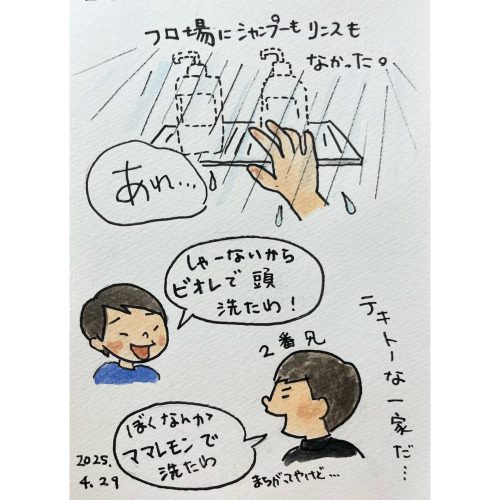 フロ場にシャンプーもリンスも
なかった。
あれ…
しゃーないから
ビオレで頭
洗たわ!
2番兄
ぼくなんか
ママレモンで
洗たわ
まちがってやけど…
テキトーな一家だ…
2025.
4.29